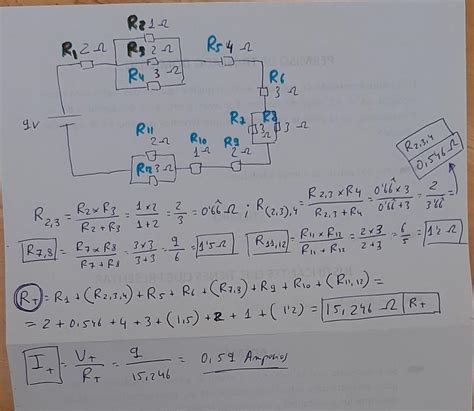 R2 1Ω
R1 2Ω R3 2Ω R5 4Ω
R4 3Ω
R6
3Ω
9v R7 R8
3Ω 3Ω
R11
2Ω R10 R9
R12 3Ω 1Ω 2Ω
R2,3,4
0,546Ω
R2,3 = R2 x R3 / R2 + R3 = 1 x 2 / 1 + 2 = 2/3 = 0'66 Ω ; R(2,3),4 = R2,3 x R4 / R2,3 + R4 = 0'66 x 3 / 0'66 + 3 = 2 / 3'66
R7,8 = R7 x R8 / R7 + R8 = 3 x 3 / 3 + 3 = 9/6 = 1'5 Ω R11,12 = R11 x R12 / R11 + R12 = 2 x 3 / 2 + 3 = 6/5 = 1'2 Ω
RT = R1 + (R2,3,4) + R5 + R6 + (R7,8) + R9 + R10 + (R11,12) =
= 2 + 0,546 + 4 + 3 + (1,5) + 2 + 1 + (1'2) = 15,246 Ω RT
IT = VT / RT = 9 / 15,246 = 0,59 Amperios